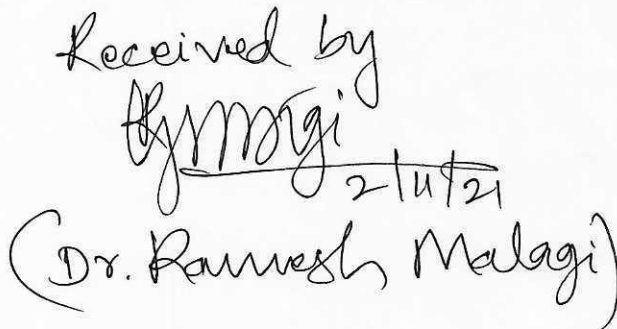 Received by
2/11/21
(Dr. Ramesh Malagi)